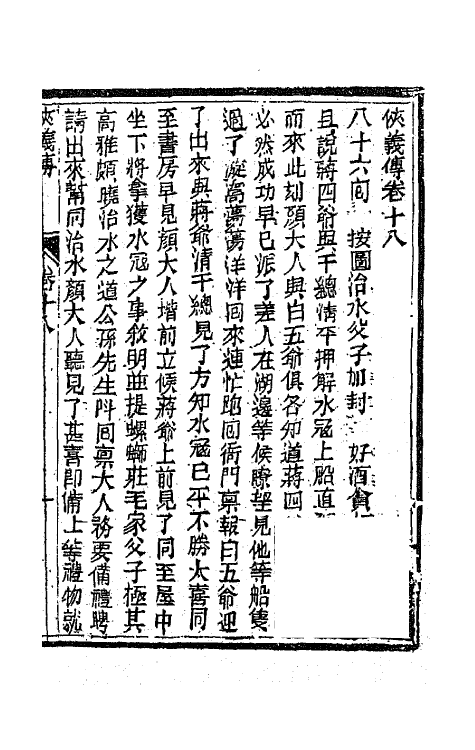 俠義傳卷十八
八十六回　按圖治水父子加封　好酒貪
且說蔣四爺與千總清平押解水寇上船直
而來此刻顏大人與白五爺俱各知道蔣四
必然成功早已派了差人在湖邊等候瞭望見他等船隻
過了漩窩蕩蕩洋洋回來連忙跑回衙門禀報白五爺迎
了出來與蔣爺清千總見了方知水寇已平不勝大喜同
至書房早見顏大人堦前立候蔣爺上前見了同至屋中
坐下將拿獲水寇之事敘明並提螺螄莊毛家父子極其
高雅頗曉治水之道公孫先生呌回禀大人務要備禮聘
請出來幫同治水顏大人聽見了甚喜即備上等禮物就
俠義傳
卷十八